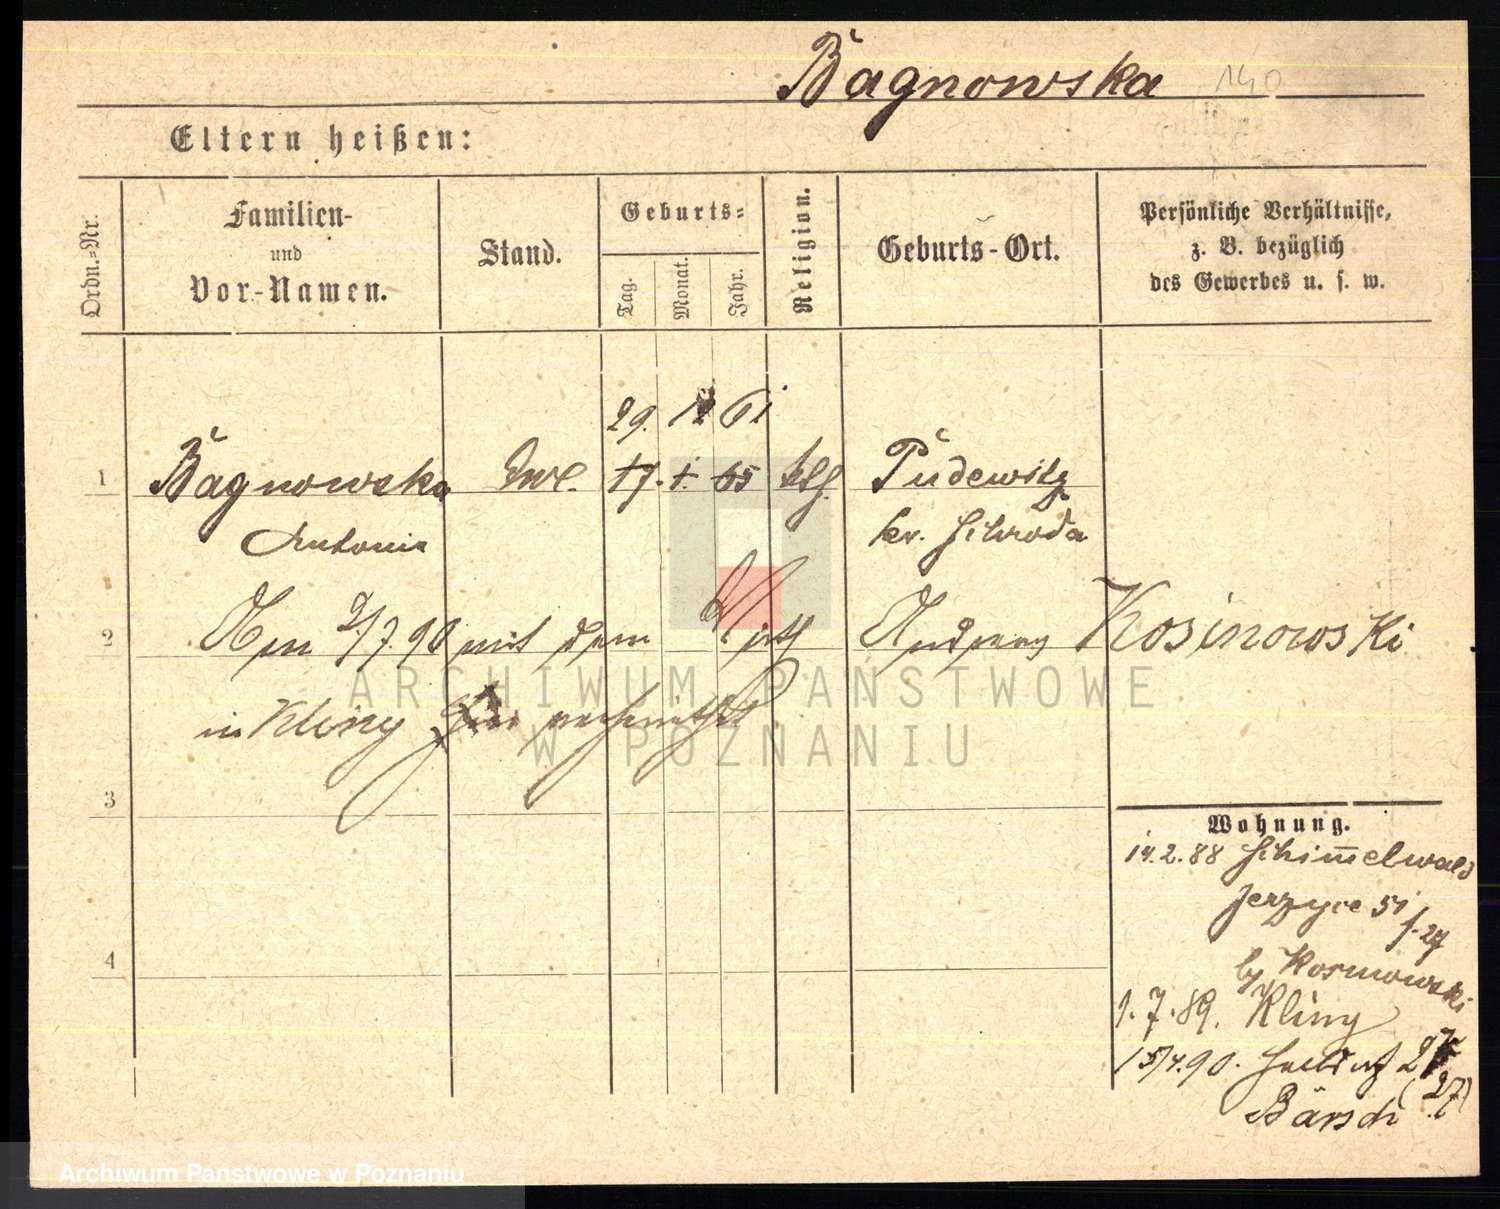 Bagnowska 140
Eltern heißen:
Ordn.=Nr.
Familien-
und
Vor-Namen.
Stand.
Geburts=
Tag.
Monat.
Jahr.
Religion.
Geburts-Ort.
Persönliche Verhältnisse,
z. B. bezüglich
des Gewerbes u. s. w.
29. 12 61
1 Bagnowska 17. 1. 65 kth. Pudewitz
Antonie kr. Schroda
2 Am 2/7.90 mit dem Wirth Andreas Kosinowski
in Kliny verheirathet
3
4
Wohnung.
14.2.88 Schimmelwald
Jerzyce 51
f. 27
by Kosinowski
1.7.89. Kliny
15/4.90. 27
(27)
Bärsch
ARCHIWUM PAŃSTWOWE
W POZNANIU
Archiwum Państwowe w Poznaniu